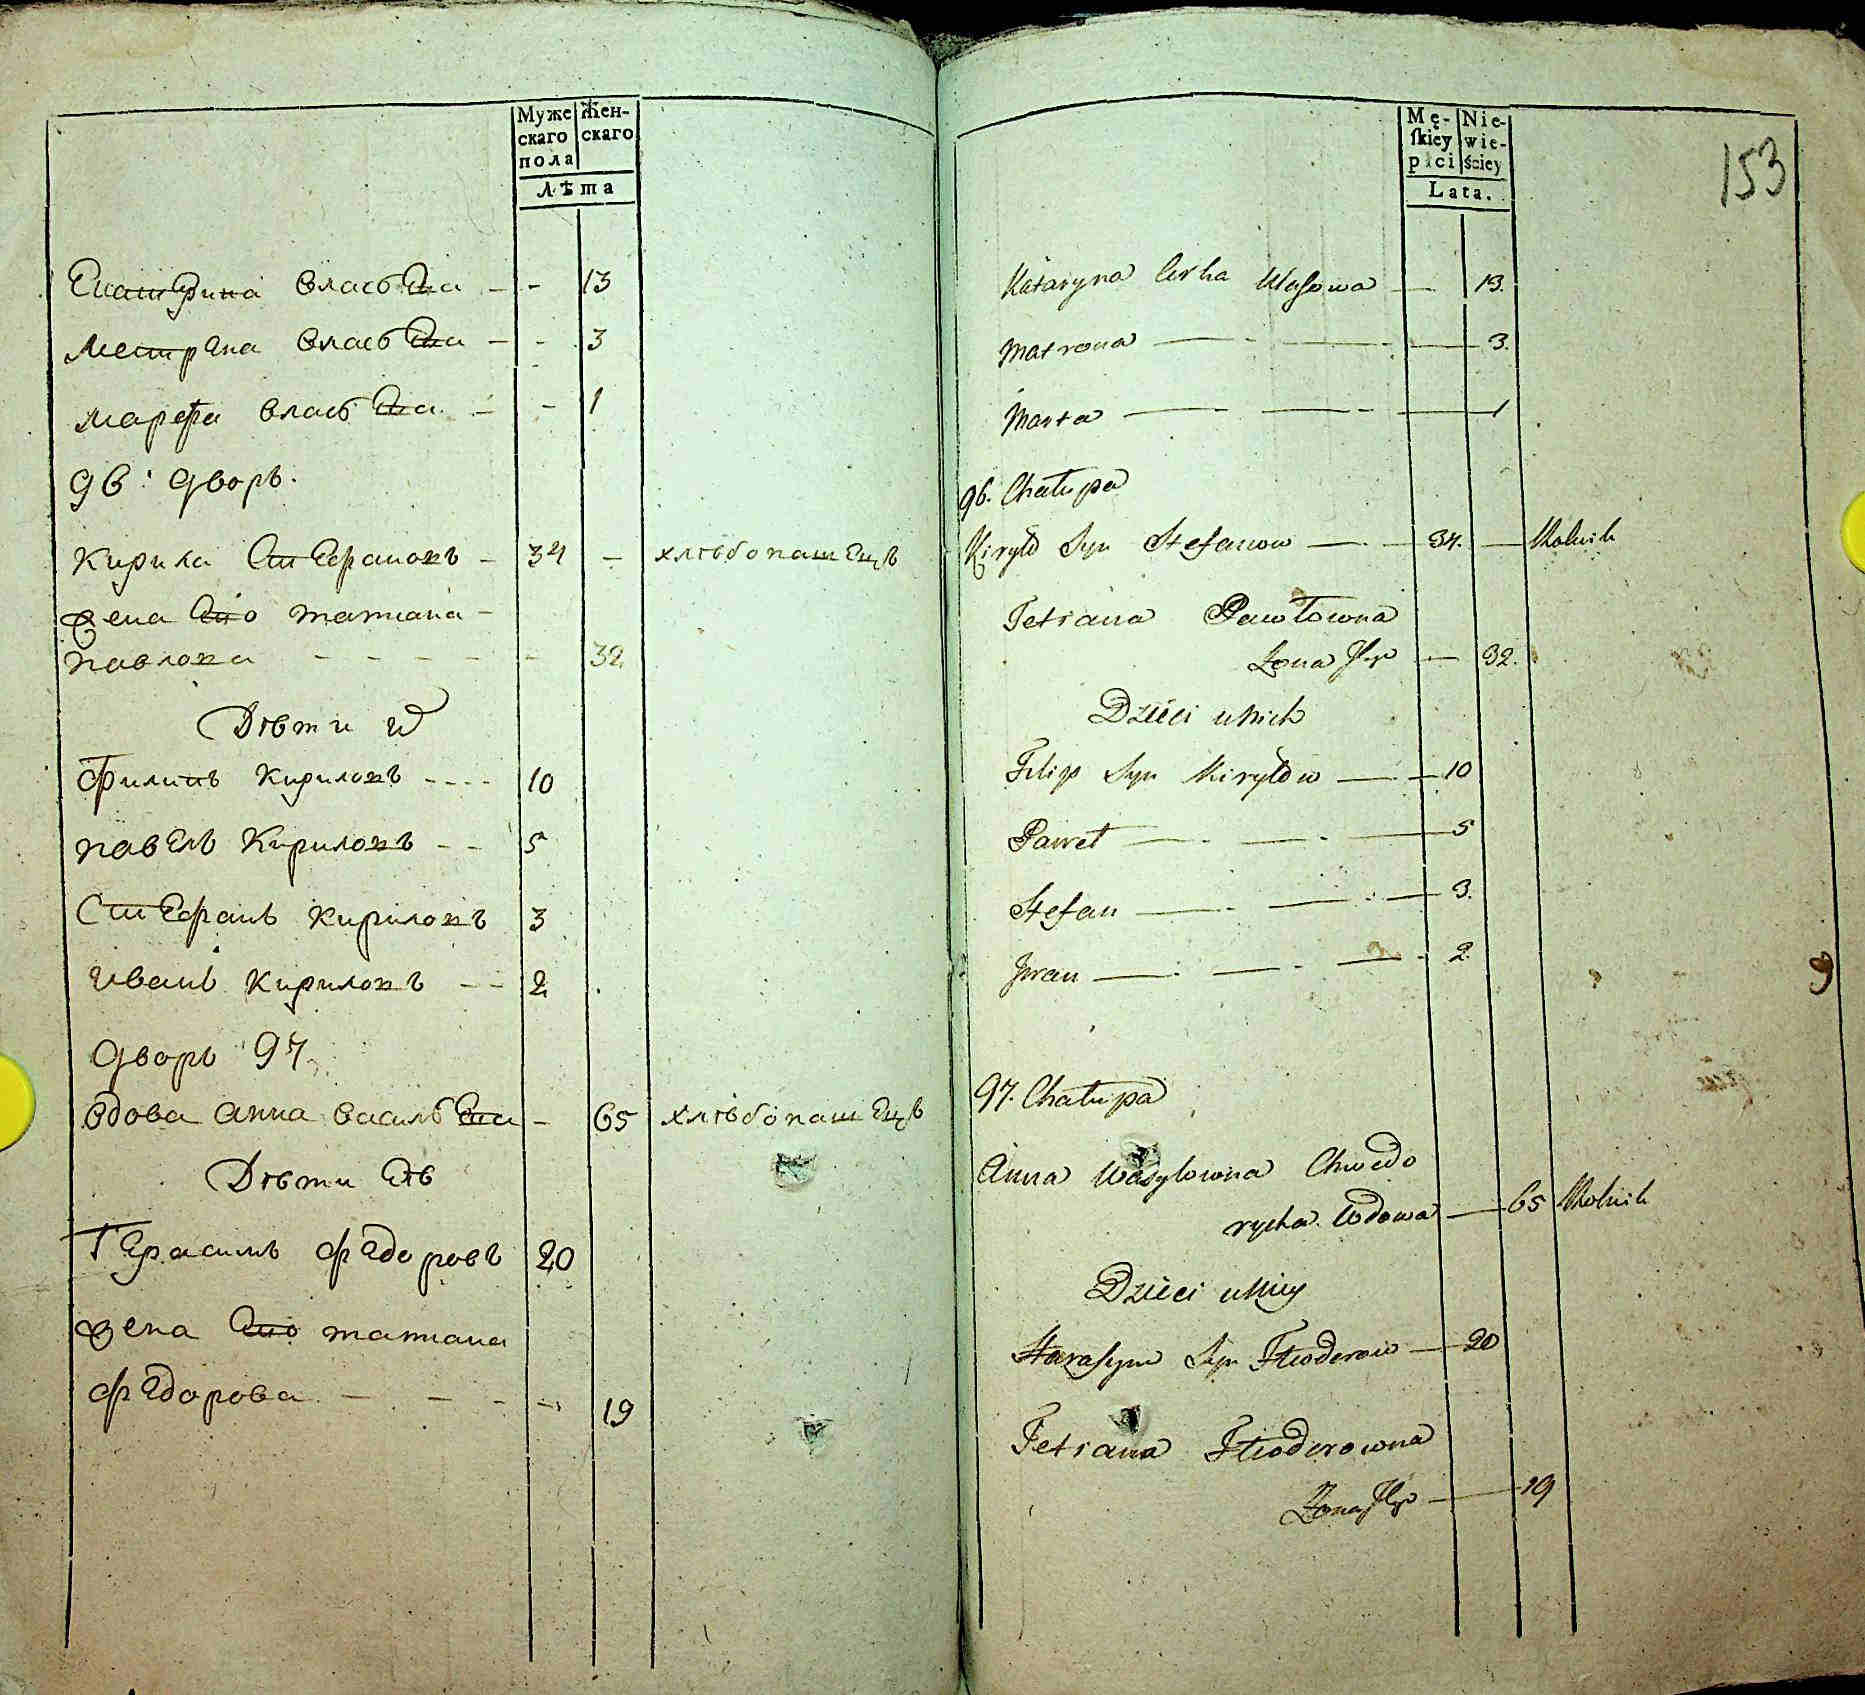 Муже
скаго
пола
Жен-
скаго
Лѣта
Екатерина Власьева - - 13
Метрена Власьева - - 3
Марѳа Власьева - - 1
96: дворъ.
Кирила Стефановъ - 34 - хлѣбопашецъ
жена ево татиана -
павлова - - - - - - 32
Дѣти ихъ
Филипъ Кириловъ - - - - 10
павелъ Кириловъ - - 5
Стефанъ Кириловъ 3
Иванъ Кириловъ - - 2
дворъ 97
вдова анна васильева - 65 хлѣбопашецъ
Дѣти еѣ
Герасимъ Федоровъ 20
жена ево татиана
Федорова - - - - 19
Mę-
ſkiey
płci
Nie-
wie-
ściey
Lata.
153
Kataryna Corka Własowa — 13.
Matrona — - — - — 3.
Marta — - — - — 1
96. Chałupa
Kiryło Syn Stefanow — - — 34. — Rolnik
Tetiana Pawłowna
Zona Jego — 32.
Dzieci u Nich
Filip Syn Kiryłow — — 10
Paweł — - — - — 5
Stefan — - — - — 3.
Jwan — - — - — - 2.
97. Chałupa
Anna Wasylowna Chwedo
rycha Wdowa — 65 Rolnik
Dzieci u Niey
Harasym Syn Fteoderow — 20
Tetiana Fteoderowna
Zona Jego — 19